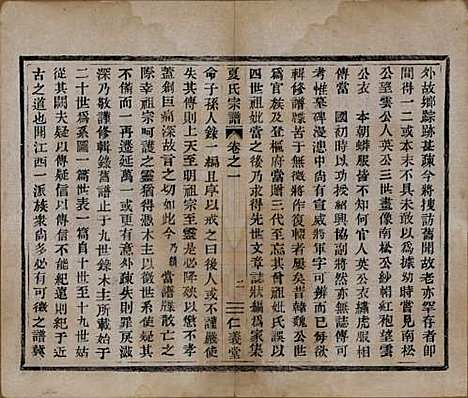 外故鄉踪跡甚疎今將搜訪舊聞故老亦罕存者即
間得一二或本末不具未敢以爲據幼時嘗見南松
公望雲公人英公三世畫像南松公紗帽紅袍望雲
公衣 本朝蟒服皆不知何官人英公繡虎服相
傳當 國初時以武功授紹興協副將然亦無誌傳可
考惟墓碑漫漶中尚有宣威將軍字可辨而已我家
將修譜牒苦于無徵將作復輟者屢矣昔韓魏公世
爲官族及登樞府當贈三代至忘其曾祖妣氏誤以
四世祖妣當之後乃求得先世文章誌狀編爲家集
夏氏宗譜 卷之一 二 仁義堂
命子孫人錄一編且序以戒之曰後人或不謹嚴使
失其傳則上天至明祖宗至靈是必降殛以懲其罪
蓋創巨痛深故言之切如此今乃賴 當譜牒存亡之
際幸祖宗呵護之靈猶得藉木主以徵信其間若復
不備而一再遷延或意外疎失則罪戾滋
深乃敬謹修輯錄舊譜止于九世錄木主所載始于
二十世爲系圖一篇世表一篇自十世至十九世姑
從其闕夫疑以傳信不能紀遠則紀于近
古之道也聞江西一派族衆尚多必有可徵之譜冀